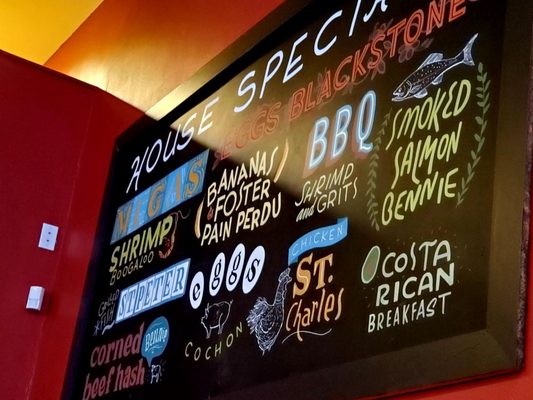 HOUSE SPECIA
EGGS BLACKSTONE
MIGAS
SHRIMP
BOOGALOO
BANANAS
FOSTER
PAIN PERDU
BBQ
SHRIMP
and GRITS
SMOKED
SALMON
BENNIE
ST PETER
eggs
COCHON
CHICKEN
ST.
Charles
COSTA
RICAN
BREAKFAST
corned
beef hash